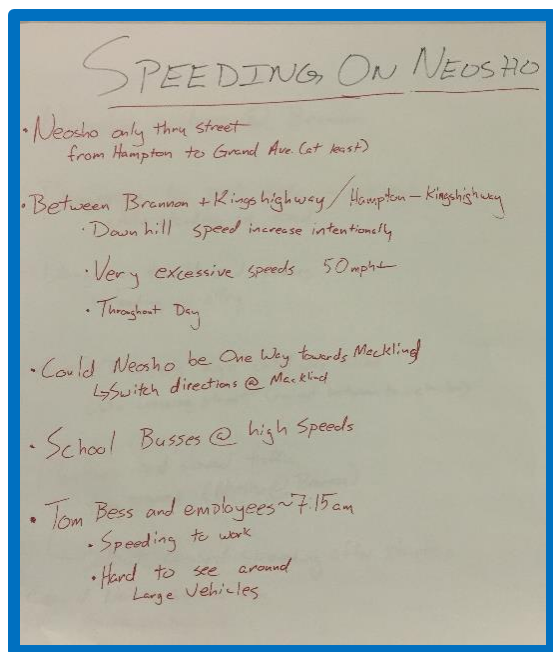 SPEEDING ON NEOSHO
• Neosho only thru street
from Hampton to Grand Ave. (at least)
• Between Brannon + Kingshighway / Hampton - Kingshighway
• Down hill speed increase intentionally
• Very excessive speeds 50mph+
• Throughout Day
• Could Neosho be One Way towards Macklind
↳ Switch directions @ Macklind
• School Busses @ high speeds
• Tom Bess and employees ~ 7:15am
• Speeding to work
• Hard to see around
Large Vehicles